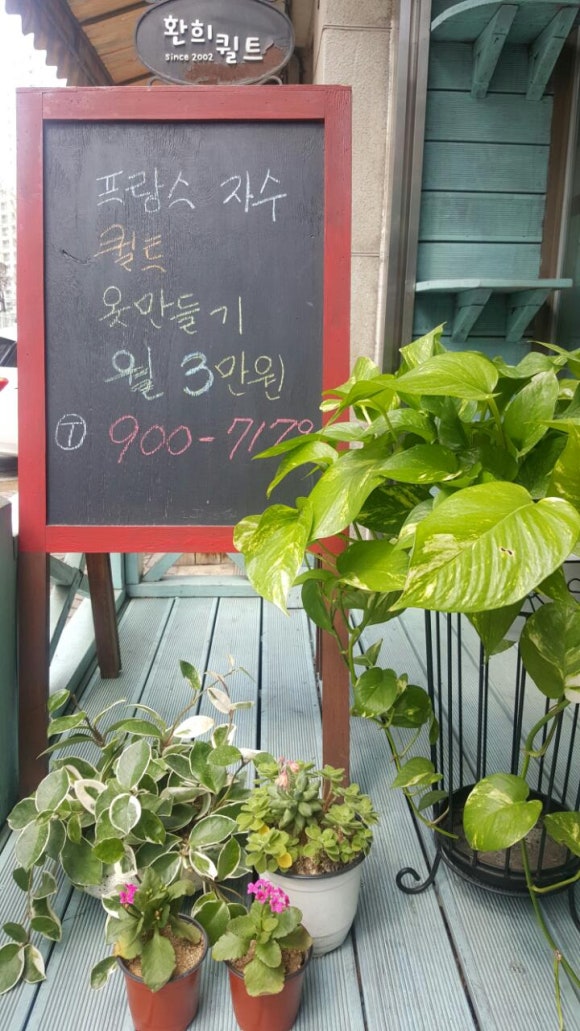 환희퀼트
since 2002
프랑스 자수
퀼트
옷만들기
월 3만원
Ⓣ 900-7179